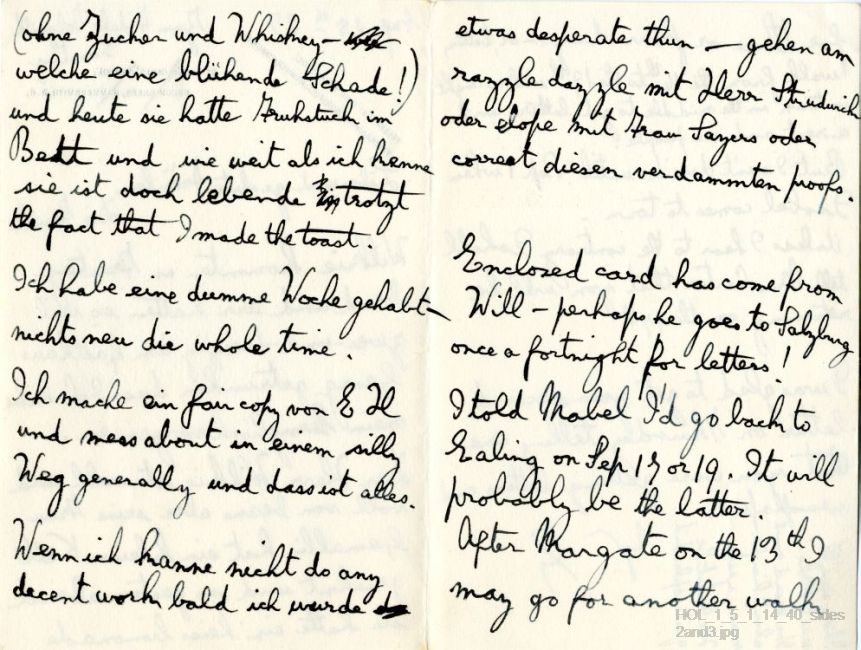 (ohne Zucher und Whiskey –
welche eine blühende Schade!)
und heute sie hatte Fruhstuch im
Bett und wie weit als ich kenne
sie ist doch lebende trotzt
the fact that I made the toast.
Ich habe eine dumme Woche gehabt –
nichts neu die whole time.
Ich mache ein fair copy von E H
und mess about in einem silly
Weg generally und dass ist alles.
Wenn ich kanne nicht do any
decent work bald ich wurde
etwas desperate thun – gehen am
razzle dazzle mit Herr Strudwick
oder elope mit Frau Sayers oder
correct diesen verdammten proofs.
Enclosed card has come from
Will – perhaps he goes to Salzburg
once a fortnight for letters!
I told Mabel I'd go back to
Ealing on Sep 17 or 19. It will
probably be the latter.
After Margate on the 13th I
may go for another walk
HOL_1_5_1_14_40_sides
2and3.jpg